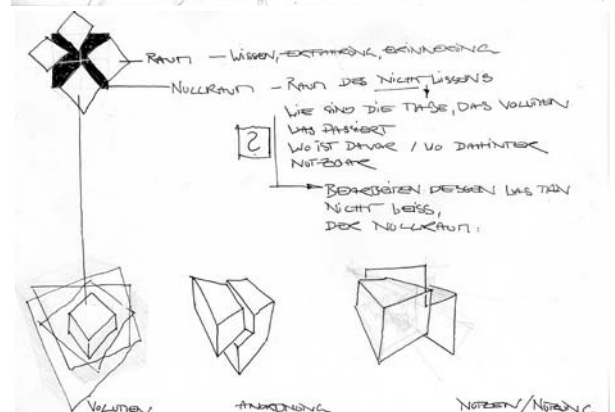 RAUM — WISSEN, ERFAHRUNG, ERINNERUNG
NULLRAUM — RAUM DES NICHTWISSENS
WIE SIND DIE MAßE, DAS VOLUMEN
WAS PASSIERT
?
WO IST DAVOR / WO DAHINTER
NUTZBAR
BEARBEITEN DESSEN WAS MAN
NICHT WEISS,
DER NULLRAUM.
VOLUMEN
ANORDNUNG
NUTZEN/NUTZUNG